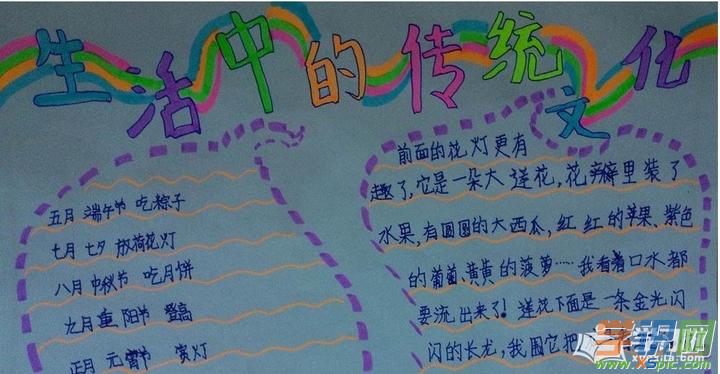 生活中的传统文化
五月 端午节 吃粽子
七月 七夕 放荷花灯
八月 中秋节 吃月饼
九月 重阳节 登高
正月 元宵节 赏灯
前面的花灯更有
趣了,它是一朵大莲花,花瓣里装了
水果,有圆圆的大西瓜,红红的苹果、紫色
的葡萄、黄黄的菠萝……我看着口水都
要流出来了!莲花下面是一条金光闪
闪的长龙,我围它把
www.xspic.com